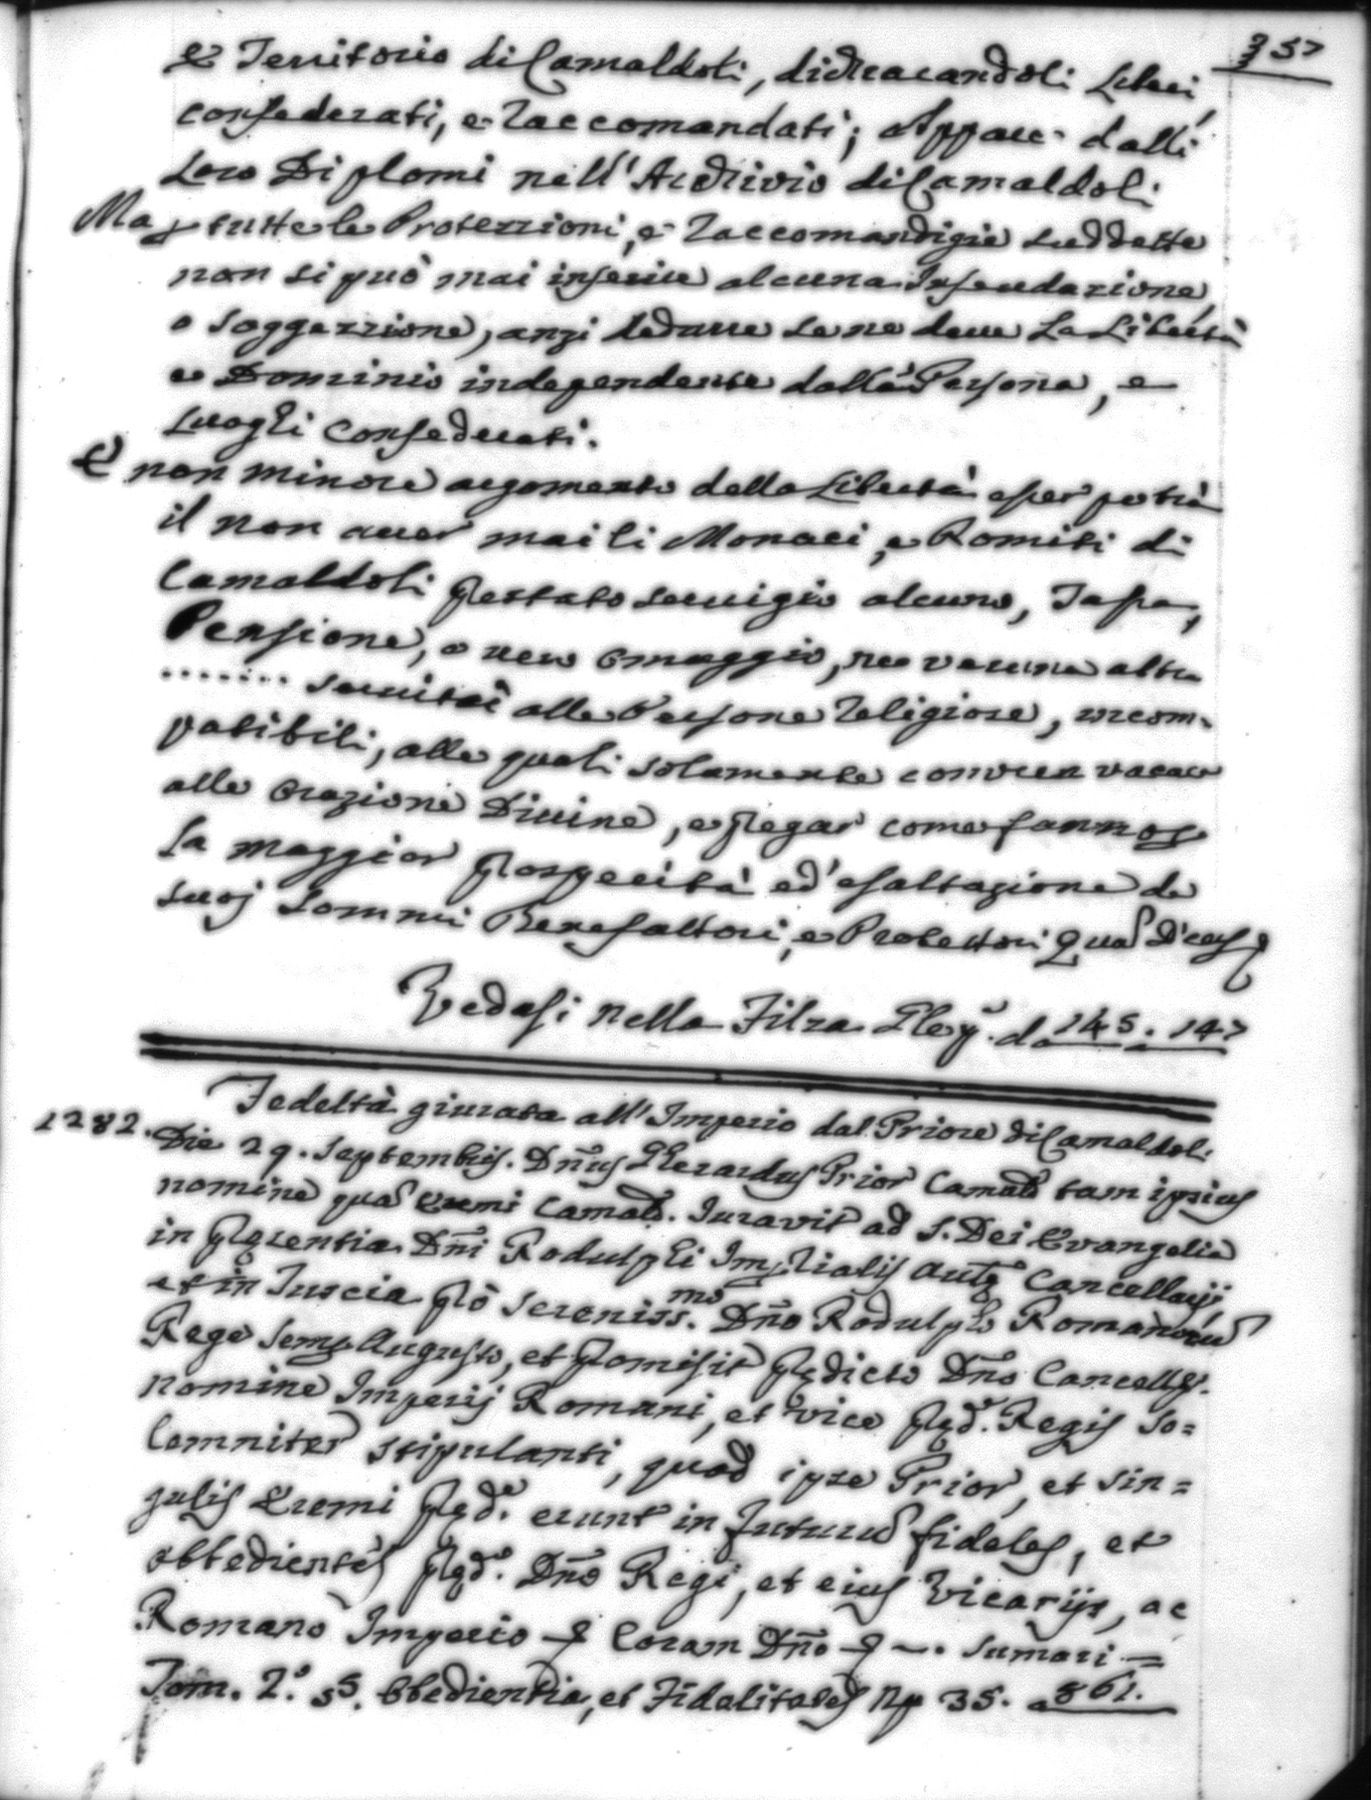 357
e Territorio di Camaldoli, dichiarandoli Liberi
confederati, e Raccomandati; Appare dalli
Loro Diplomi nell' Archivio di Camaldoli
Ma tutte le Protezzioni, e Raccomandigie suddette
non si può mai inferire alcuna Infeudazione
o soggezzione, anzi dedurre se ne deve La Libertà
e Dominio independente dalla Persona, e
Luoghi confederati.
E non minore argomento della Libertà esser potrà
il non aver mai li Monaci, e Romiti di
Camaldoli prestato servigio alcuno, Tassa,
Pensione, o vero omaggio, ne veruna altra
....... servitù alle Persone Religiose, incom-
patibili, alle quali solamente convien vacare
alle orazione Divine, e pregar come fanno
La maggior prosperità ed' esaltazione de
suoj sommi Benefattori, e Protettori
Vedasi nella Filza da 145. 147
Fedeltà giurata all' Imperio dal Priore di Camaldoli
1282. Die 29. Septembris. Dn̄us Gherardus Prior Camald. tam ipsius
nomine quā Eremi Camald. Iuravit ad S. Dei Evangelia
in presentia Dn̄i Rodulphi Imp̄rialis Aulę Cancellarij
et in Tuscia pro Sereniss.mo Dn̄o Rodulpho Romanorū
Rege semp Augusto, et promisit prędicto Dn̄o Cancell.
nomine Imperij Romani, et vice pręd. Regis so=
lemniter stipulanti, quod ipse Prior, et sin=
gulis Eremi pręd. erunt in futurū fideles, et
obbedientes pręd. Dn̄o Regi, et eius Vicarijs, ac
Romano Imperio Coram Dn̄o Sumari=
Tom. 2.° 55. Obbedientia, et Fidelitates 35. a 861.